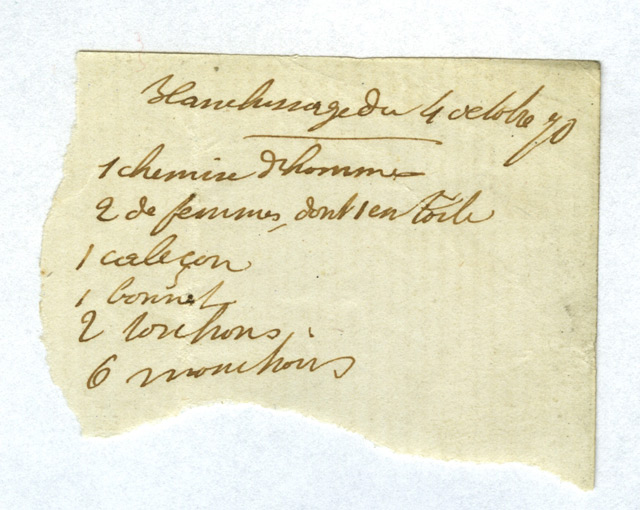 Blanchissage du 4 octobre 70
1 chemise d'homme
2 de femmes, dont 1 en toile
1 caleçon
1 bonnet
2 torchons
6 mouchoirs